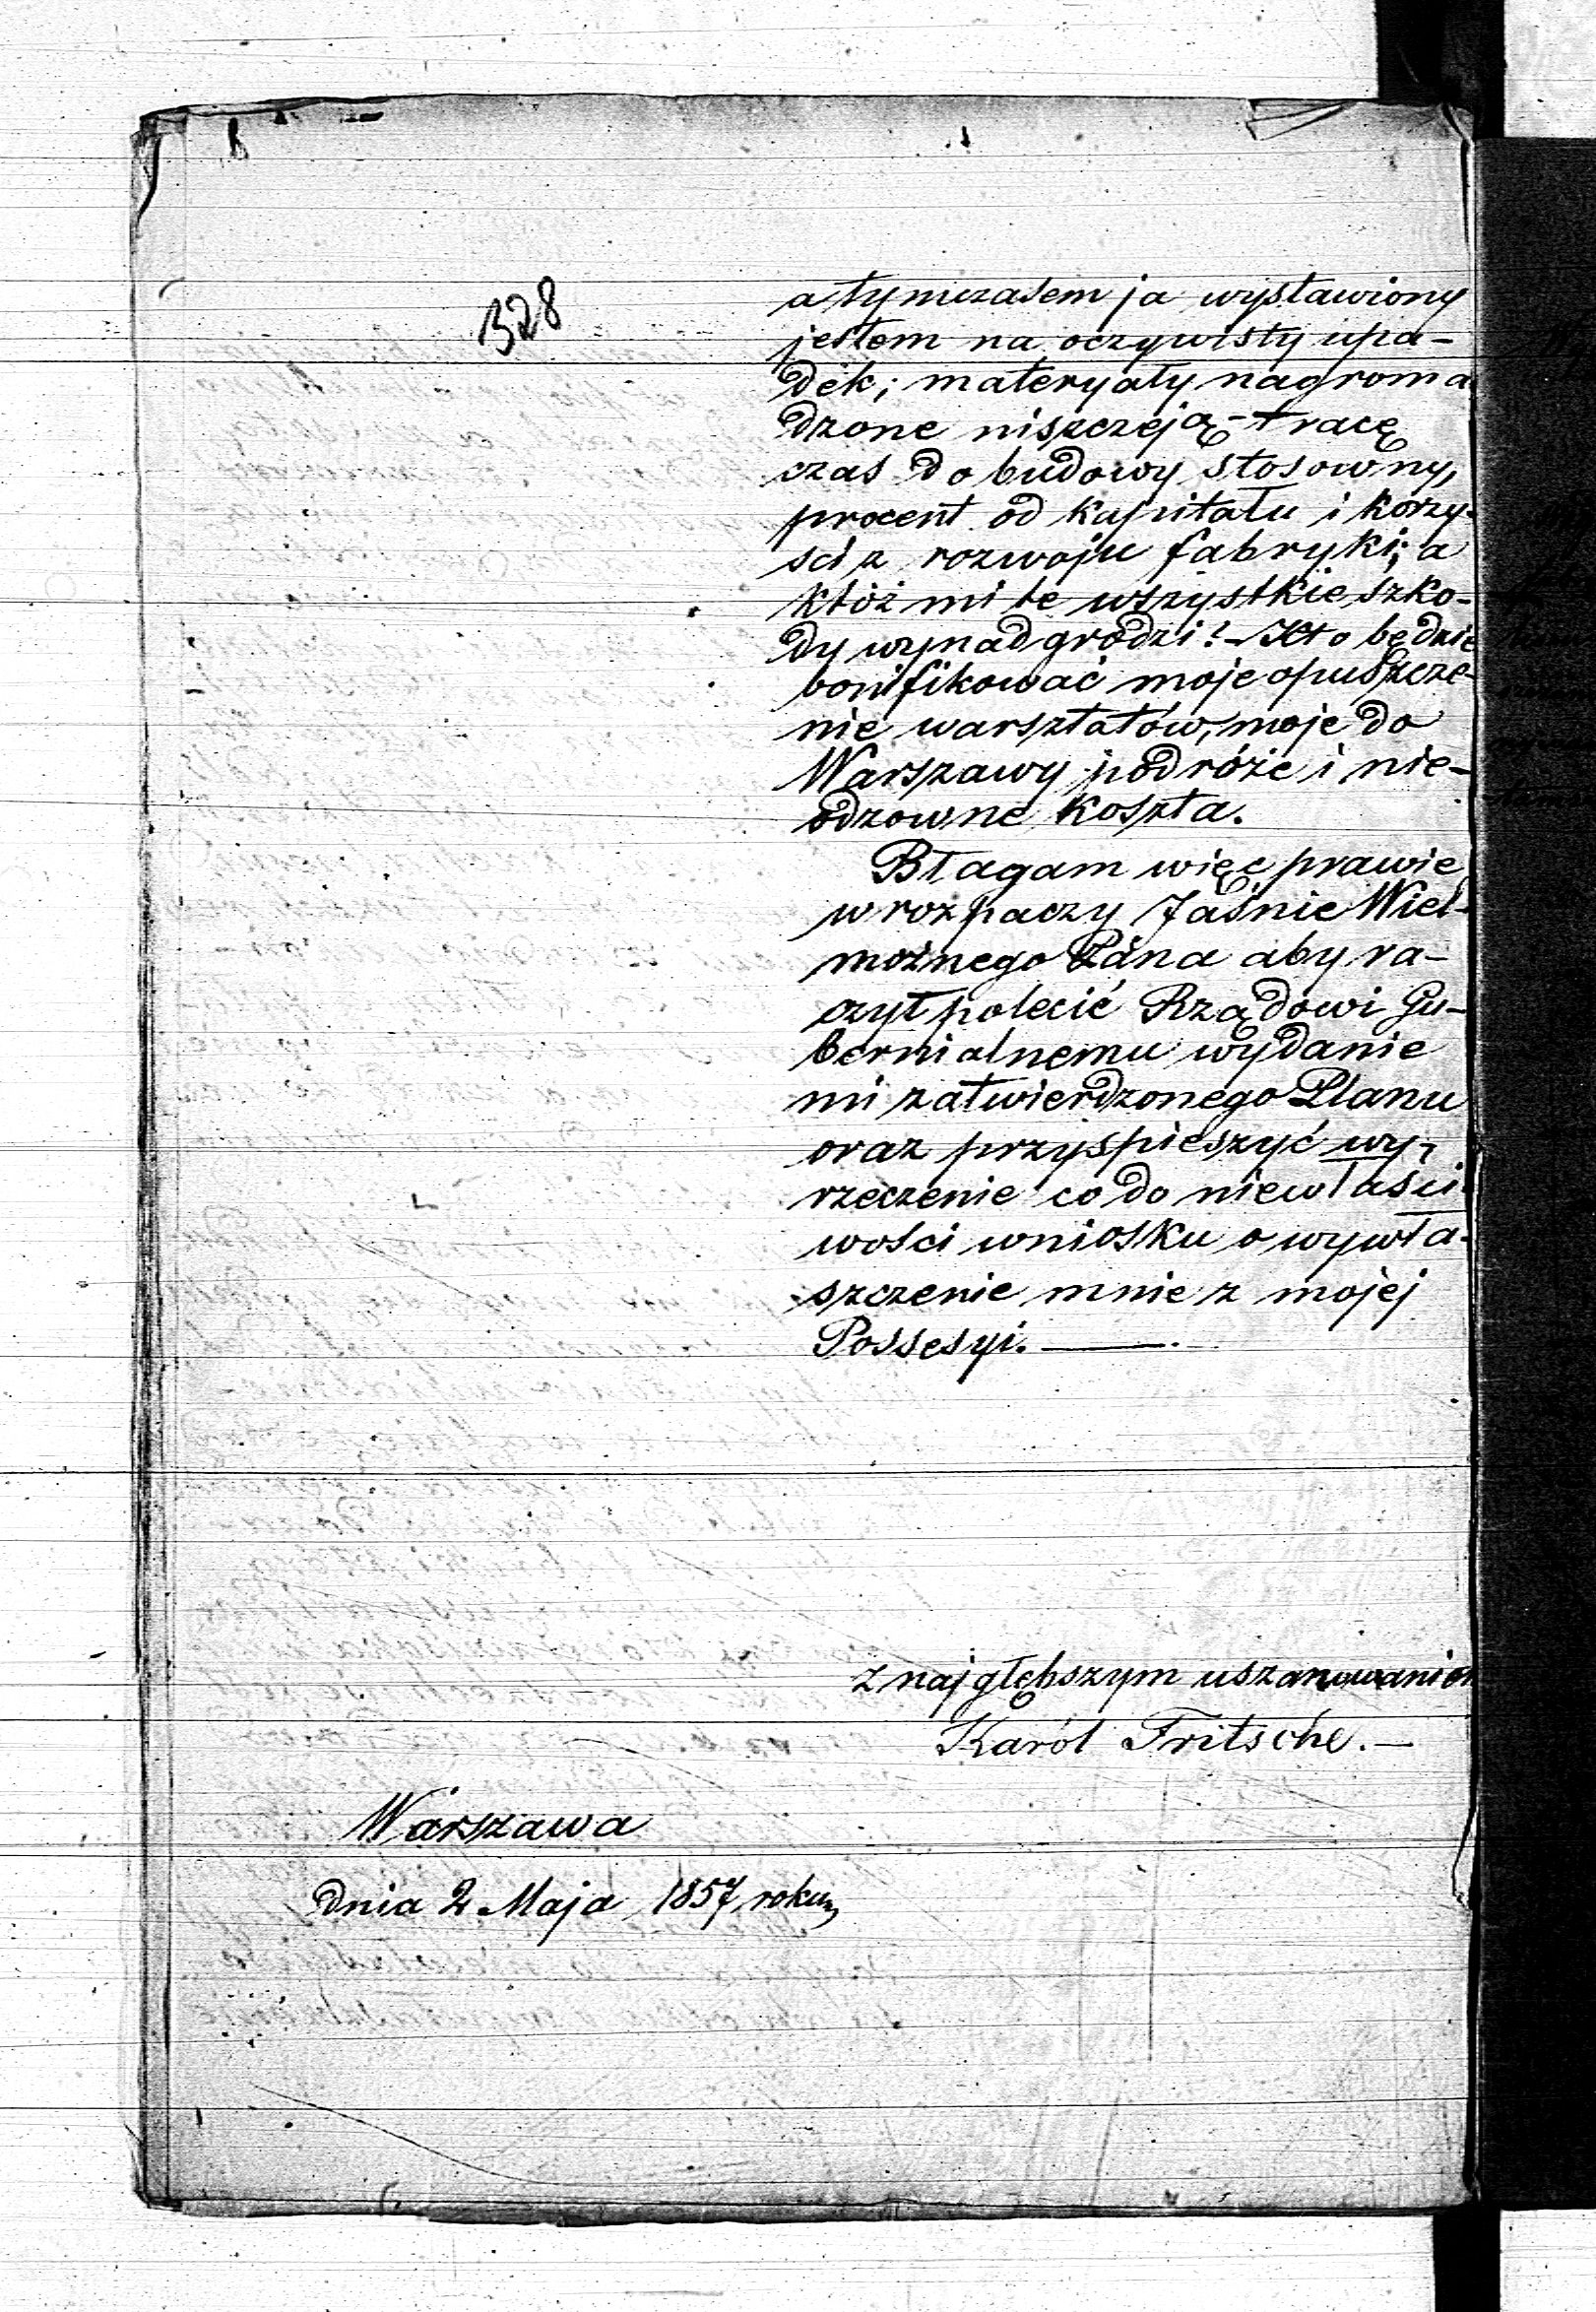 328
a tymczasem ja wystawiony
jestem na oczywisty upa-
dek; materyały nagroma
dzone niszczeją – tracę
czas do budowy stosowny,
procent od kapitału i korzy-
ści z rozwoju fabryki; a
któż mi te wszystkie szko-
dy wynadgrodzi! – Kto będzie
bonifikować moje opuszcze-
nie warsztatów, moje do
Warszawy podróże i nie-
odzowne koszta.
Błagam więc prawie
w rozpaczy Jaśnie Wiel-
możnego Pana aby ra-
czył polecić Rządowi Gu-
bernialnemu wydanie
mi zatwierdzonego Planu
oraz przyspieszyć wy-
rzeczenie co do niewłaści-
wości wniosku o wywła-
szczenie mnie z mojej
Possesyi. —
z najgłębszym uszanowaniem
Karól Fritsche. –
Warszawa
dnia 2 Maja 1857 roku